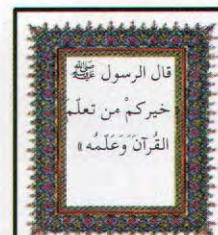 قال الرسول ﷺ
خيركمْ من تعلّمَ
القُرآنَ وَعَلّمُه »